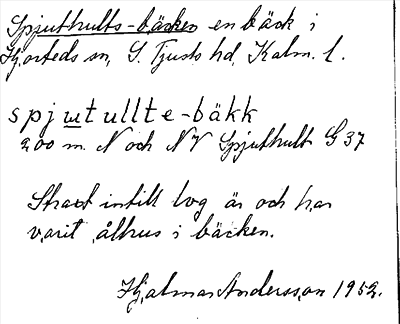 Spjuthults-bäcken en bäck i
Hjorteds sn, S. Tjusts hd, Kalm. l.
spjutullte-bäkk
200 m. N och NV Spjuthult G 37
Strax intill log är och har
varit ålhus i bäcken.
Hjalmar Andersson 1952.